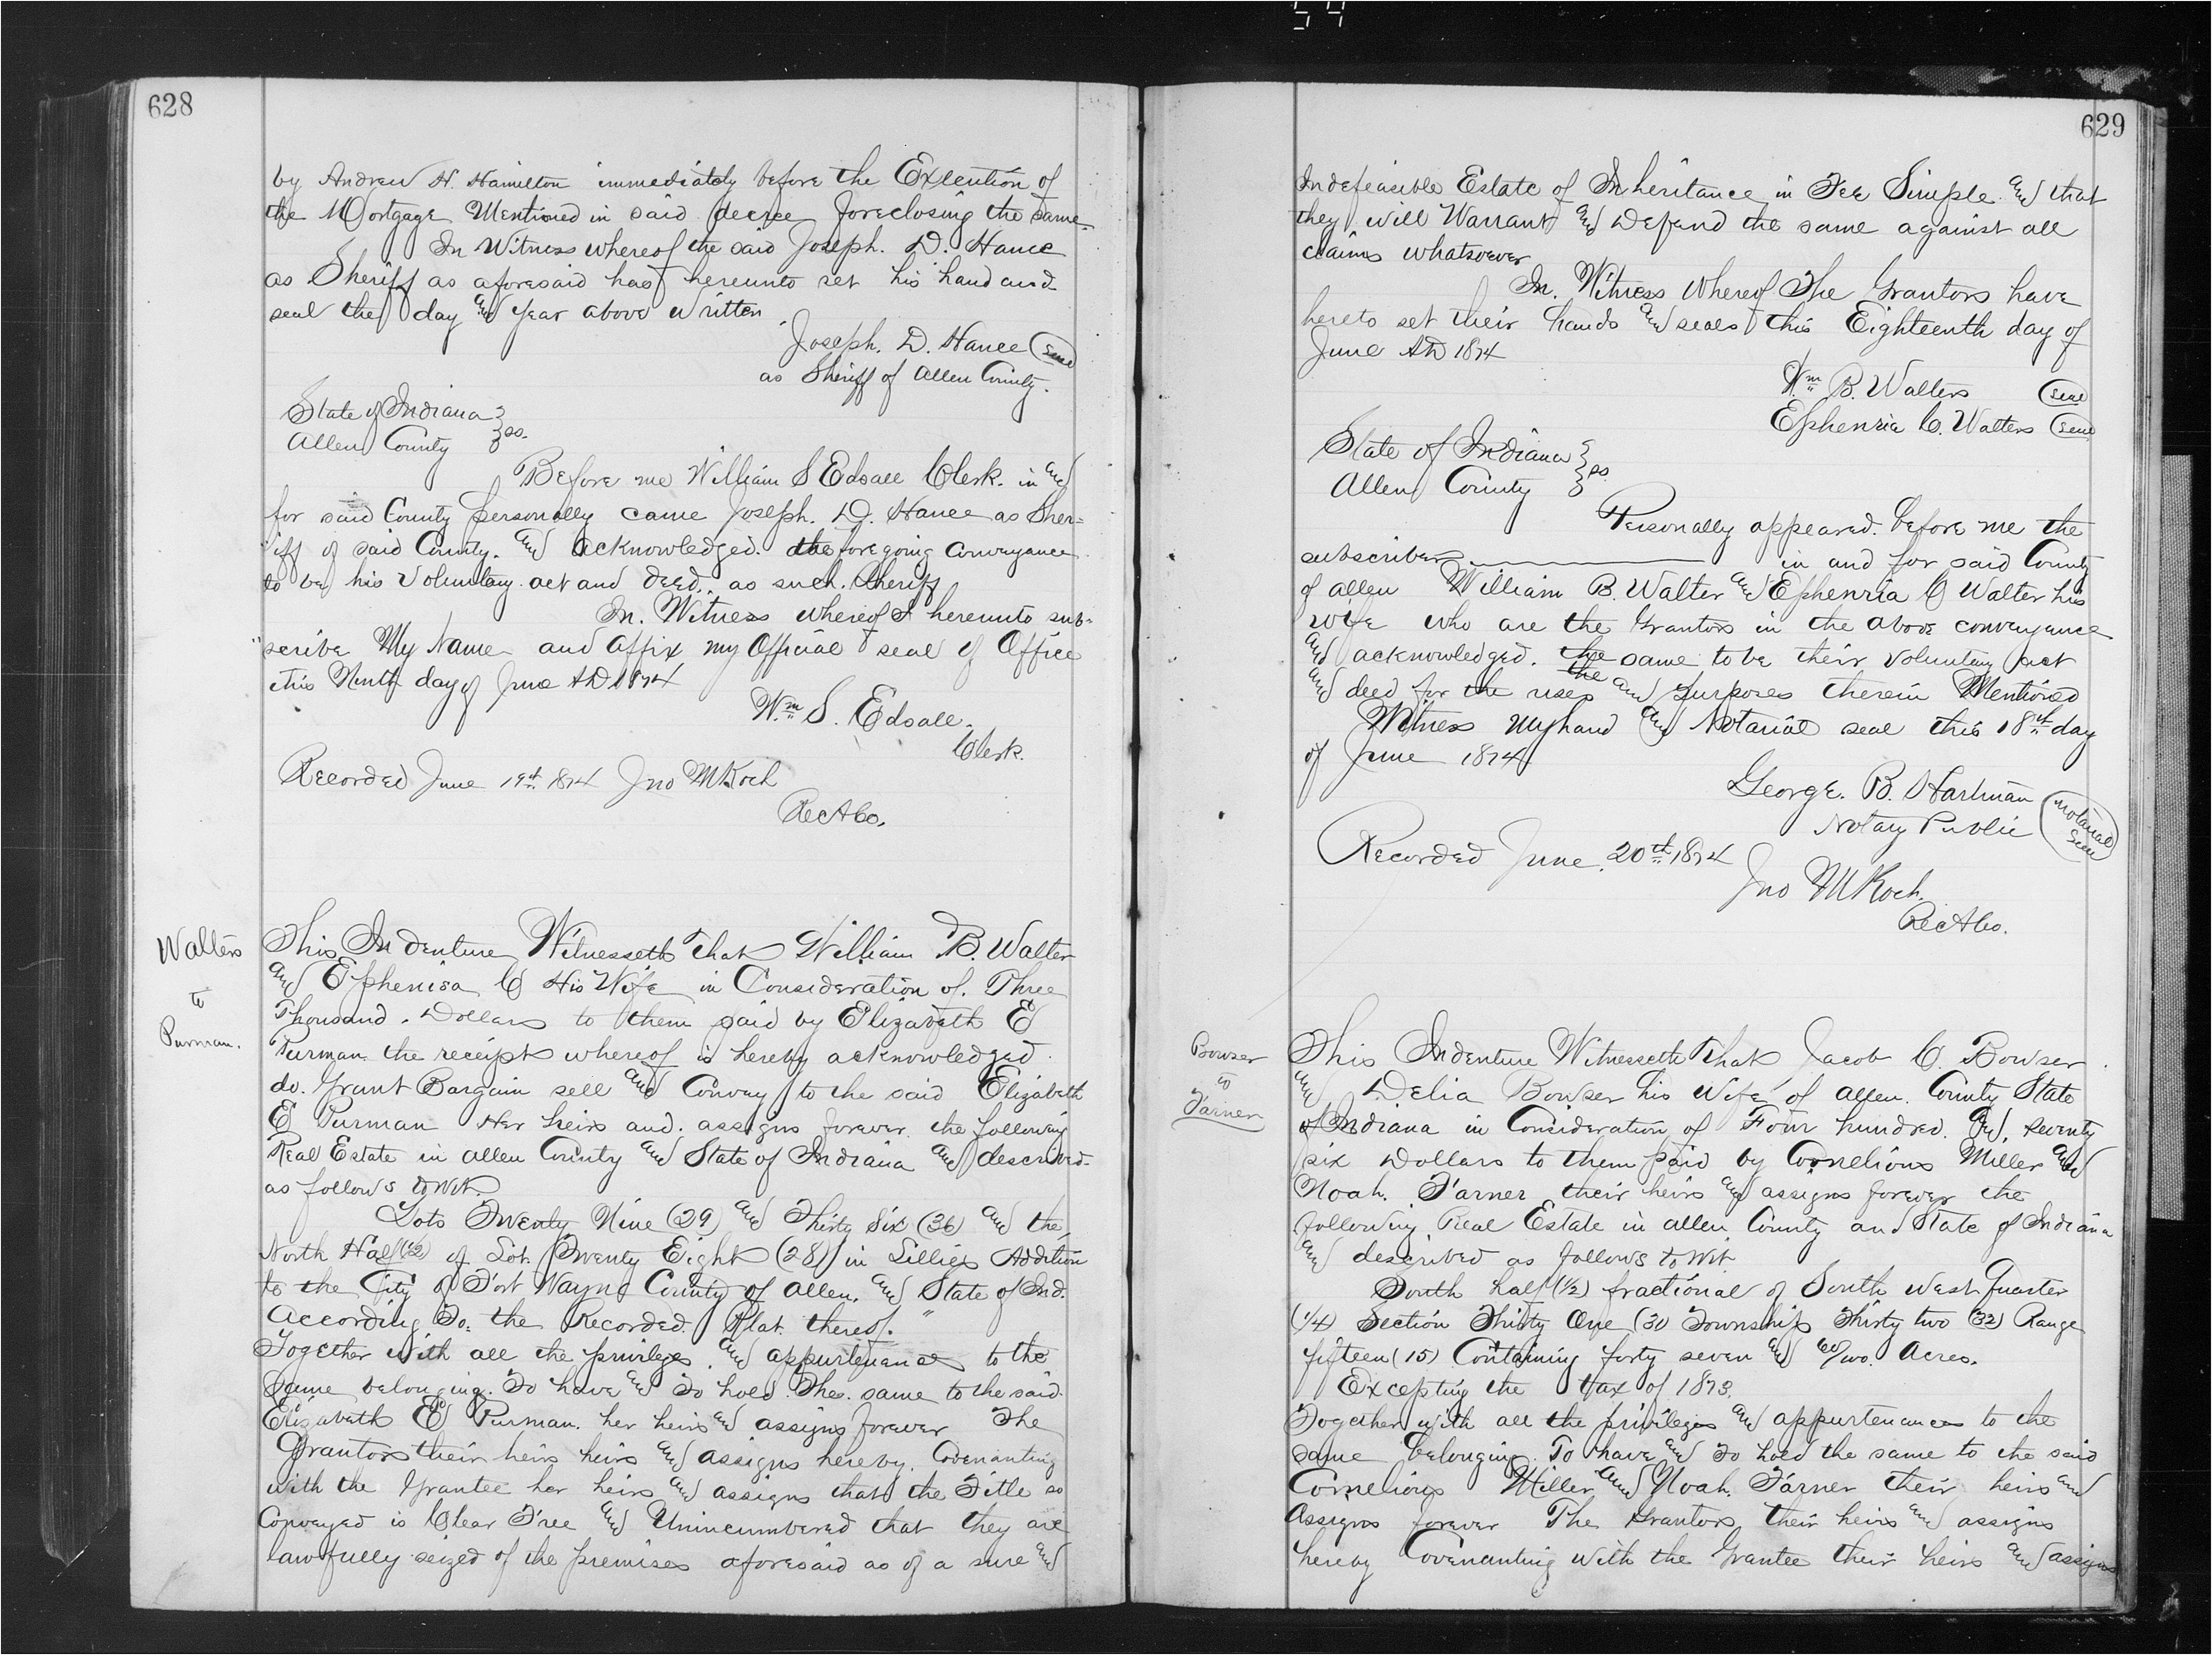 54
628
by Andrew H. Hamilton immediately before the Execution of
the Mortgage Mentioned in said decree foreclosing the same.
In Witness whereof the said Joseph. D. Hance
as Sheriff as aforesaid has hereunto set his hand and
seal the day and year above written
Joseph. D. Hance (Seal)
as Sheriff of Allen County.
State of Indiana }
Allen County } ss.
Before me William S Edsall Clerk. in and
for said County personally came Joseph. D. Hance as Sher=
iff of said County. and acknowledged. the foregoing Conveyance
to be his Voluntary act and deed, as such. Sheriff
In. Witness whereof I hereunto sub=
scribe My Name and affix my Official seal of Office
this Ninth day of June AD 1874
Wm S. Edsall.
Clerk.
Recorded June 19th 1874 Jno M Koch
RecACo.
Walters
to
Purman.
This Indenture Witnesseth That William B. Walter
and Ephenisa C His Wife in Consideration of. Three
Thousand. Dollars to them paid by Elizabeth E
Purman the receipt whereof is hereby acknowledged
do. Grant Bargain sell and Convey to the said Elizabeth
E Purman Her heirs and. assigns forever the following
Real Estate in Allen County and State of Indiana and described
as follows to Wit.
Lots Twenty Nine (29) and Thirty Six (36) and the
North Half (1/2) of Lot. Twenty Eight (28) in Lillies Addition
to the City of Fort Wayne County of Allen. and State of Ind.
According To. the Recorded. Plat. thereof. "
Together with all the privileges. and appurtenances to the
same belonging. To have and To hold. The. same to the said
Elizabeth E Purman. her heirs and assigns forever The
Grantors their heirs heirs and assigns hereby. Covenanting
with the Grantee her heirs and assigns that the Title so
Conveyed is Clear Free and Unincumbered that they are
lawfully seized of the premises aforesaid as of a sure and
629
Indefeasible Estate of Inheritance in Fee Simple. and that
they will Warrant and Defend the same against all
claims whatsoever
In. Witness Whereof The Grantors have
hereto set their hands and seals this Eighteenth day of
June AD 1874
Wm B. Walters (Seal)
Ephenria C. Walters (Seal)
State of Indiana }
Allen County } ss.
Personally appeared. before me the
subscriber in and for said County
of Allen William B. Walter and Ephenria C Walter his
wife who are the Grantors in the above conveyance
and acknowledged. the same to be their Voluntary act
and deed for the uses the and purposes therein Mentioned
Witness my hand and Notarial seal this 18th day
of June 1874
George. B. Hartman
Notary Public (Notarial Seal)
Recorded June. 20th 1874
Jno M Koch.
RecACo.
Bowser
to
Farner
This Indenture Witnesseth That Jacob C. Bowser
and Delia Bowser his Wife of Allen. County State
of Indiana in Consideration of Four hundred. and, seventy
six Dollars to them paid by Cornelious Miller and
Noah. Farner their heirs and assigns forever the
following Real Estate in Allen County and State of Indiana
and described as follows to Wit.
South half (1/2) fractional of South West Quarter
(1/4) Section Thirty One (31) Township Thirty two (32) Range
fifteen (15) Containing forty seven and 60/100. Acres.
Excepting the tax of 1873.
Together with all the privileges and appurtenances to the
same belonging. To have and To hold the same to the said
Cornelious Miller and Noah. Farner their heirs and
Assigns forever The Grantors their heirs and assigns
hereby Covenanting with the Grantee their heirs and assigns